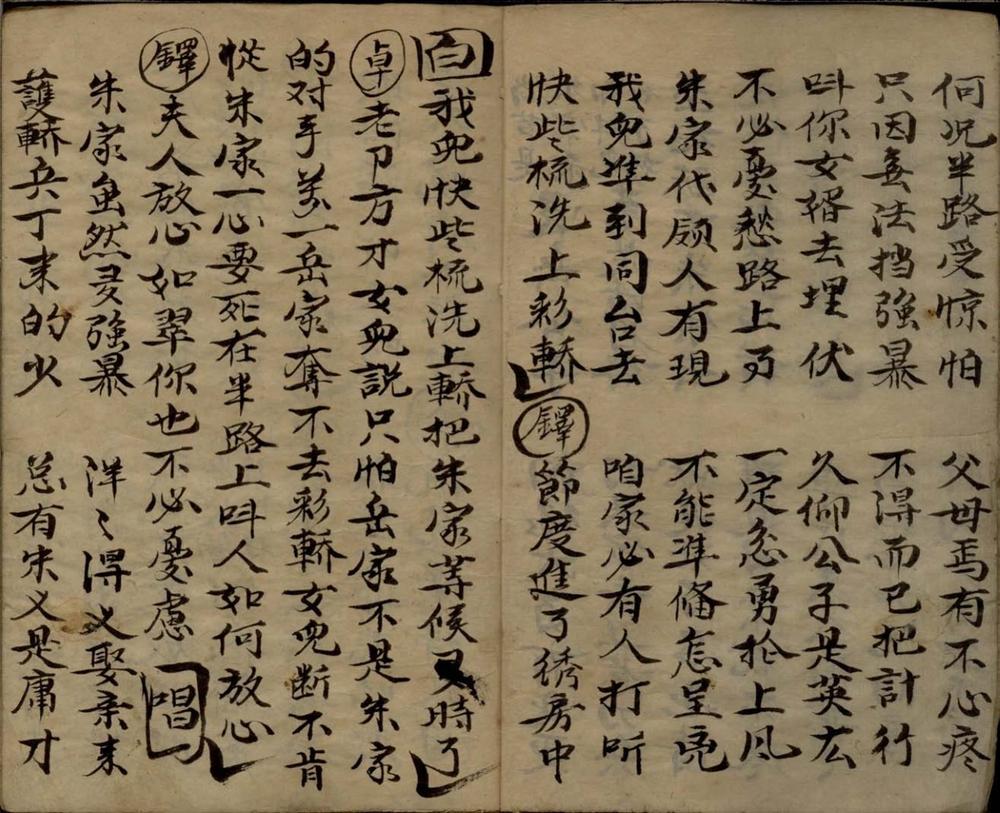 何况半路受惊怕　父母焉有不心疼
只因無法挡強暴　不得而已把計行
呌你女婿去埋伏　久仰公子是英 
不必憂愁路上 　一定忿勇抢上风
朱家代领人有現　不能準俻怎呈亮
我兒準到同台去　咱家必有人打听
快些梳洗上彩轎　鐸　節度進了绣房中
白　我兒快些梳洗上轎把朱家等候 時了
卓　老 方才女兒説只怕岳家不是朱家
的对手萬一岳家奪不去彩轎女兒断不肯
從朱家一心要死在半路上呌人如何放心
鐸　夫人放心如翠你也不必憂慮　唱
朱家虽然 強暴　洋〻得义娶亲来
護轎兵丁来的少　总有朱义是庸才